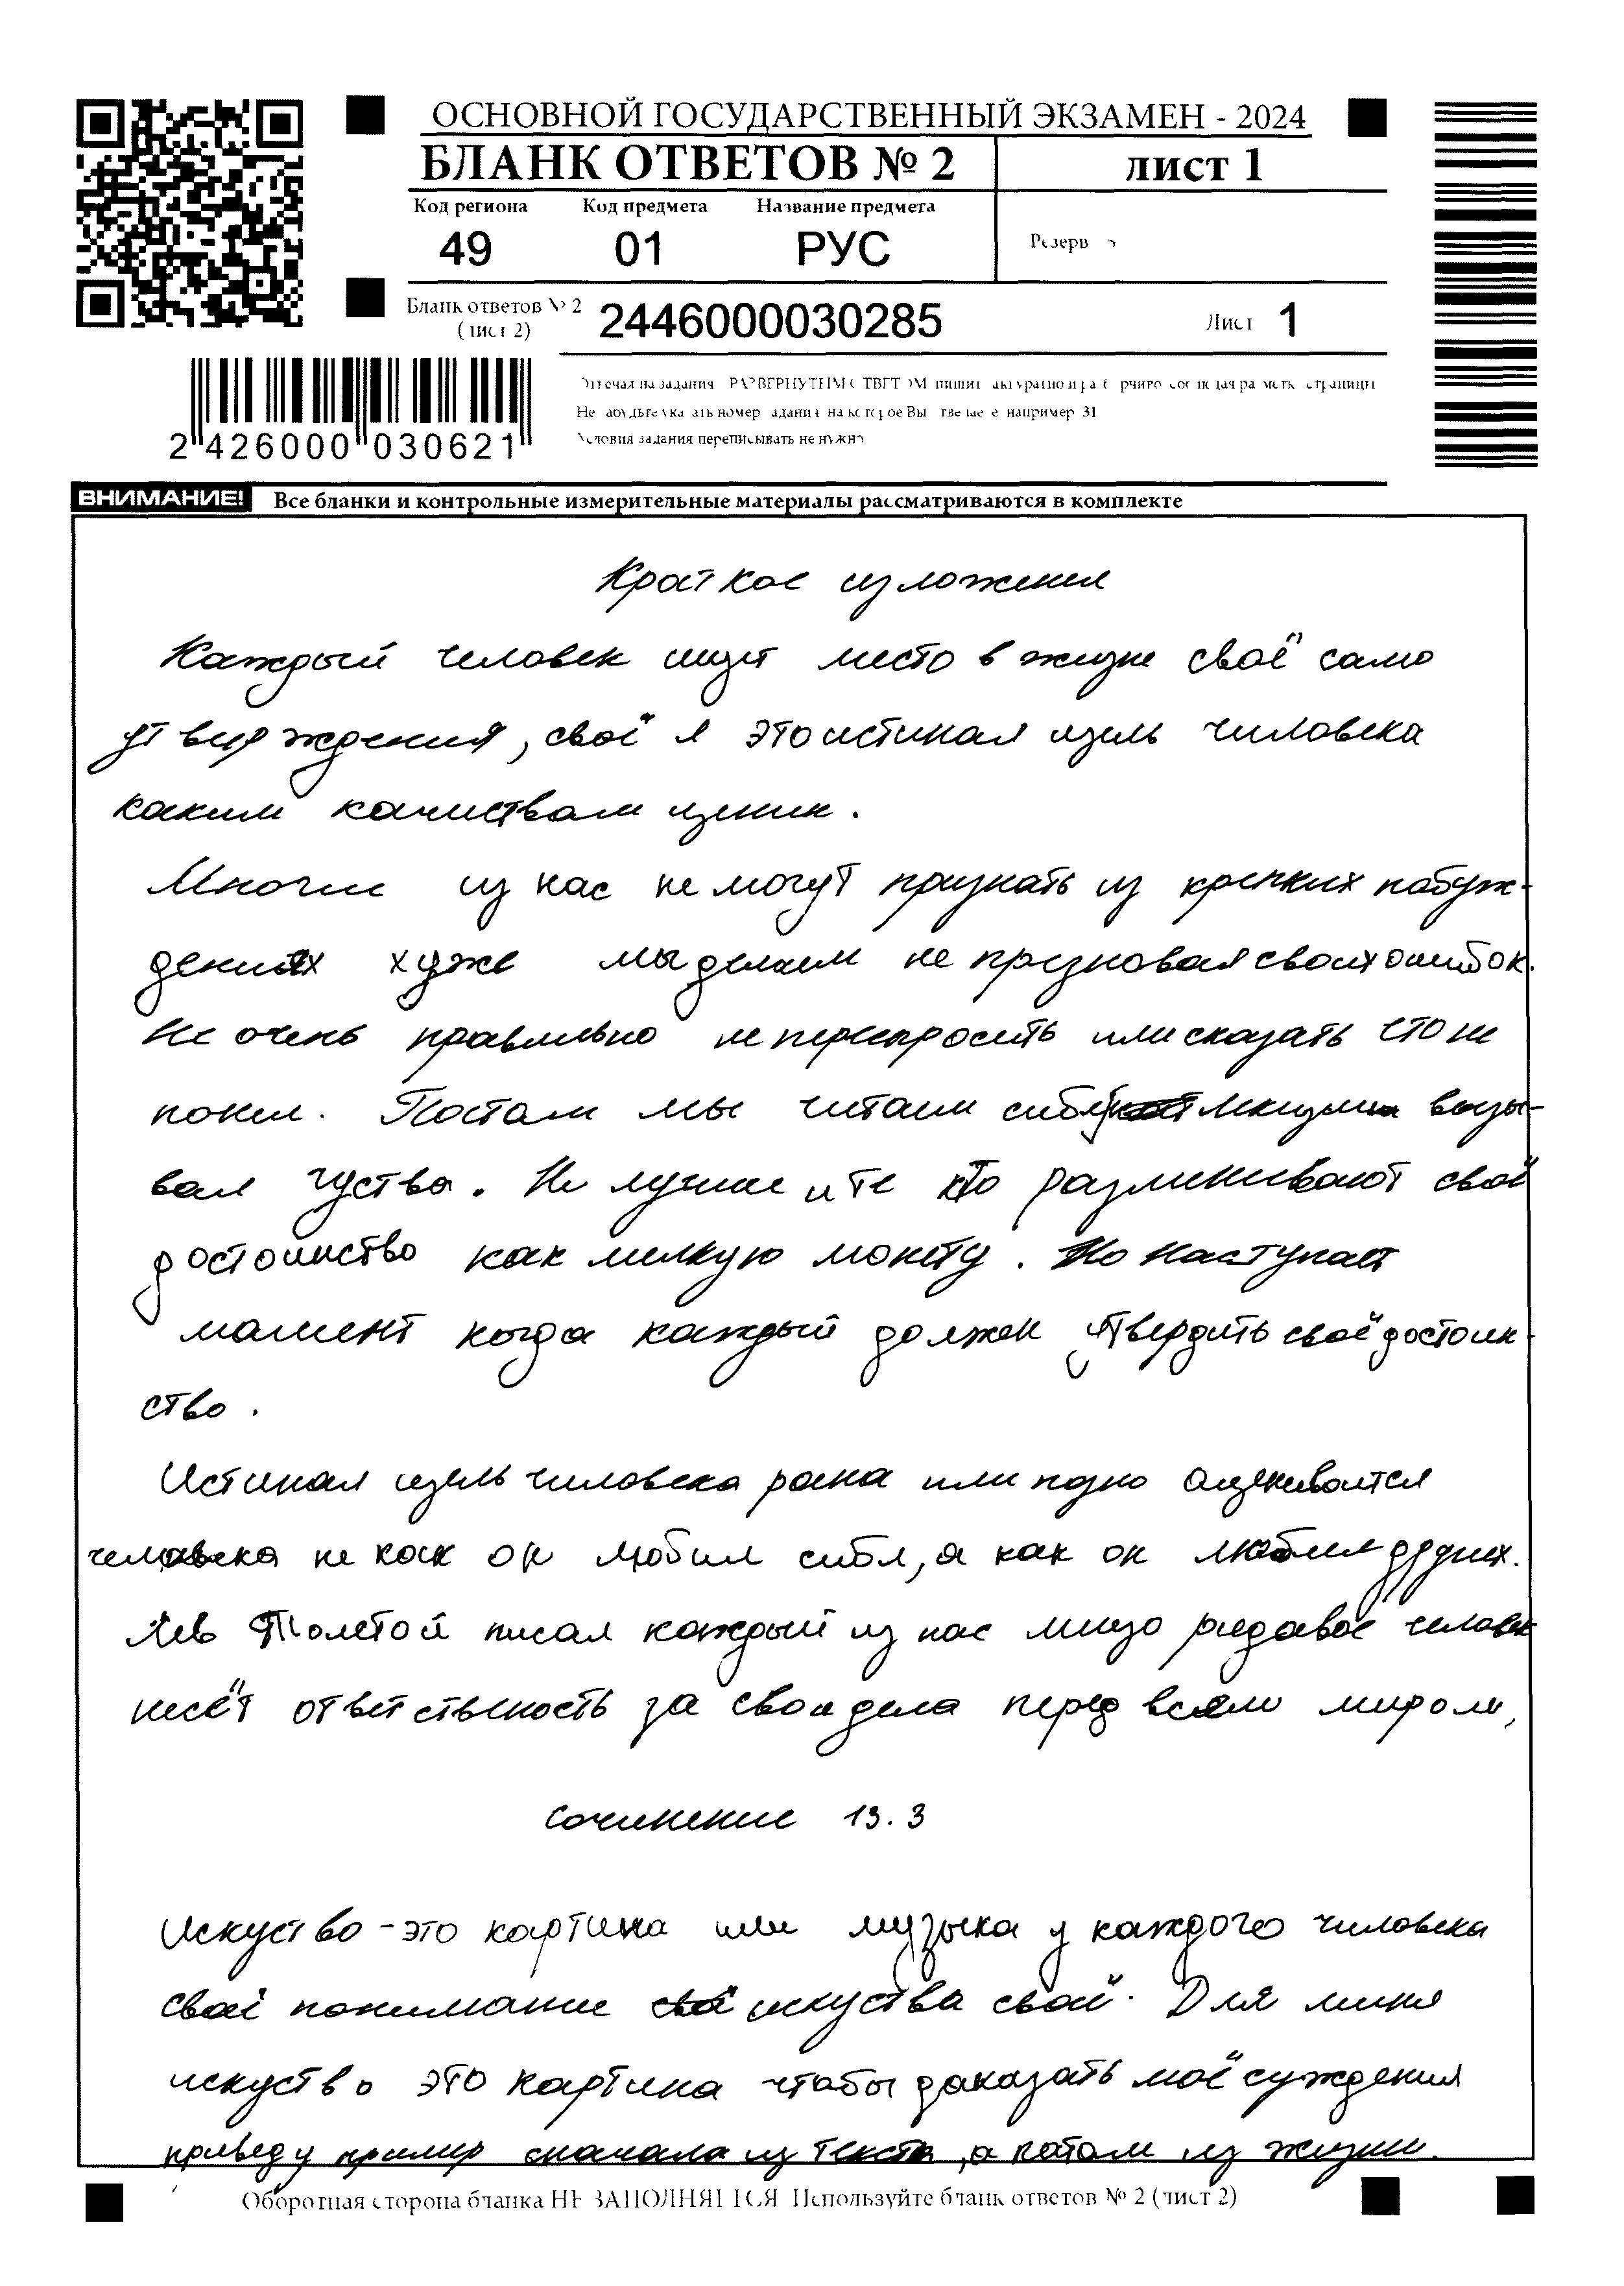 ОСНОВНОЙ ГОСУДАРСТВЕННЫЙ ЭКЗАМЕН - 2024
БЛАНК ОТВЕТОВ № 2
лист 1
Код региона Код предмета Название предмета
49 01 РУС
Резерв
Бланк ответов № 2
(лист 2)
2446000030285
Лист 1
2 426000 030621
Условия задания переписывать не нужно
ВНИМАНИЕ! Все бланки и контрольные измерительные материалы рассматриваются в комплекте
Краткое изложения
Каждый человек ищет место в жизне своё само
утвирждения, своё я это истиная цель чиловека
каким качиствам ценик.
Многие из нас не могут признать из крепких побуж-
дениях хуже мы делаем не презновая своих ошибок.
Не очень правильно не перепросить или сказать что не
понел. Постам мы читаем сибя вызы-
вая чуства. Не лучше и те кто разменивают своё
достоинство как мелкую монету. Но наступает
мамент когда каждый должен утвердить своё достоин-
ство.
Истиная цель чиловека рана или поздно оценивается
человека не как он любил сибя, а как он любил других.
Лев Толстой писал каждый из нас человек
несёт ответствность за свои дела перед всем миром,
сочинение 13.3
Искуство - это картина или музыка у каждого чиловека
своё понимание искуства своё. Для миня
искуство это картина чтобы даказать моё суждения
приведу пример сначала из текста, а потом из жизни.
Оборотная сторона бланка НЕ ЗАПОЛНЯЕТСЯ. Используйте бланк ответов № 2 (лист 2)